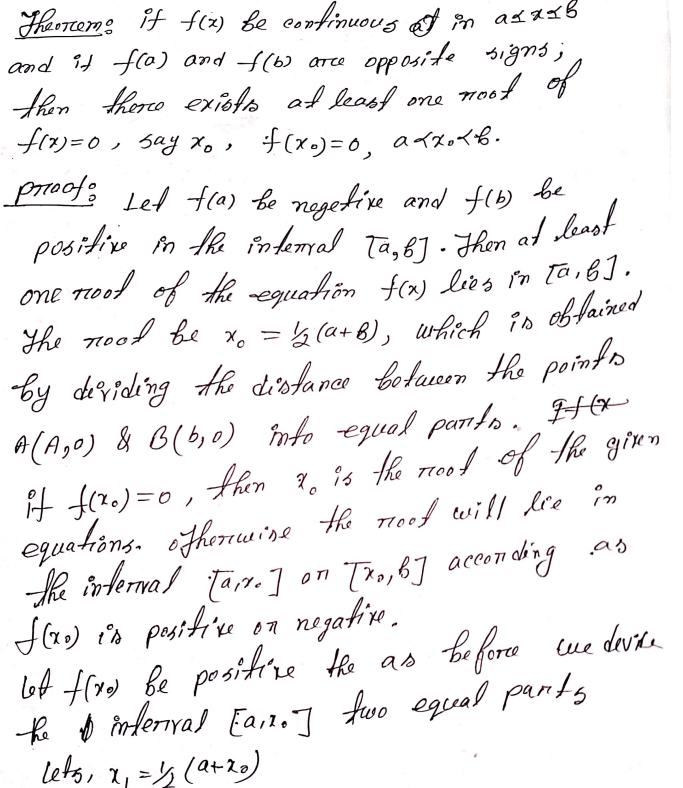 Theorem: if f(x) be continuous in a<x<b
and if f(a) and f(b) are opposite signs;
then there exists at least one root of
f(x)=0, say x₀, f(x₀)=0, a<x₀<b.
proof: Let f(a) be negetive and f(b) be
positive in the interval [a,b]. Then at least
one root of the equation f(x) lies in [a,b].
The root be x₀ = ½(a+b), which is obtained
by deviding the distance between the points
A(A,0) & B(b,0) into equal parts. If f(x
if f(x₀)=0, then x₀ is the root of the given
equations. otherwise the root will lie in
the interval [a,x₀] or [x₀,b] according as
f(x₀) is positive or negative.
let f(x₀) be positive the as before we devide
the interval [a,x₀] two equal parts
lets, x₁ = ½(a+x₀)